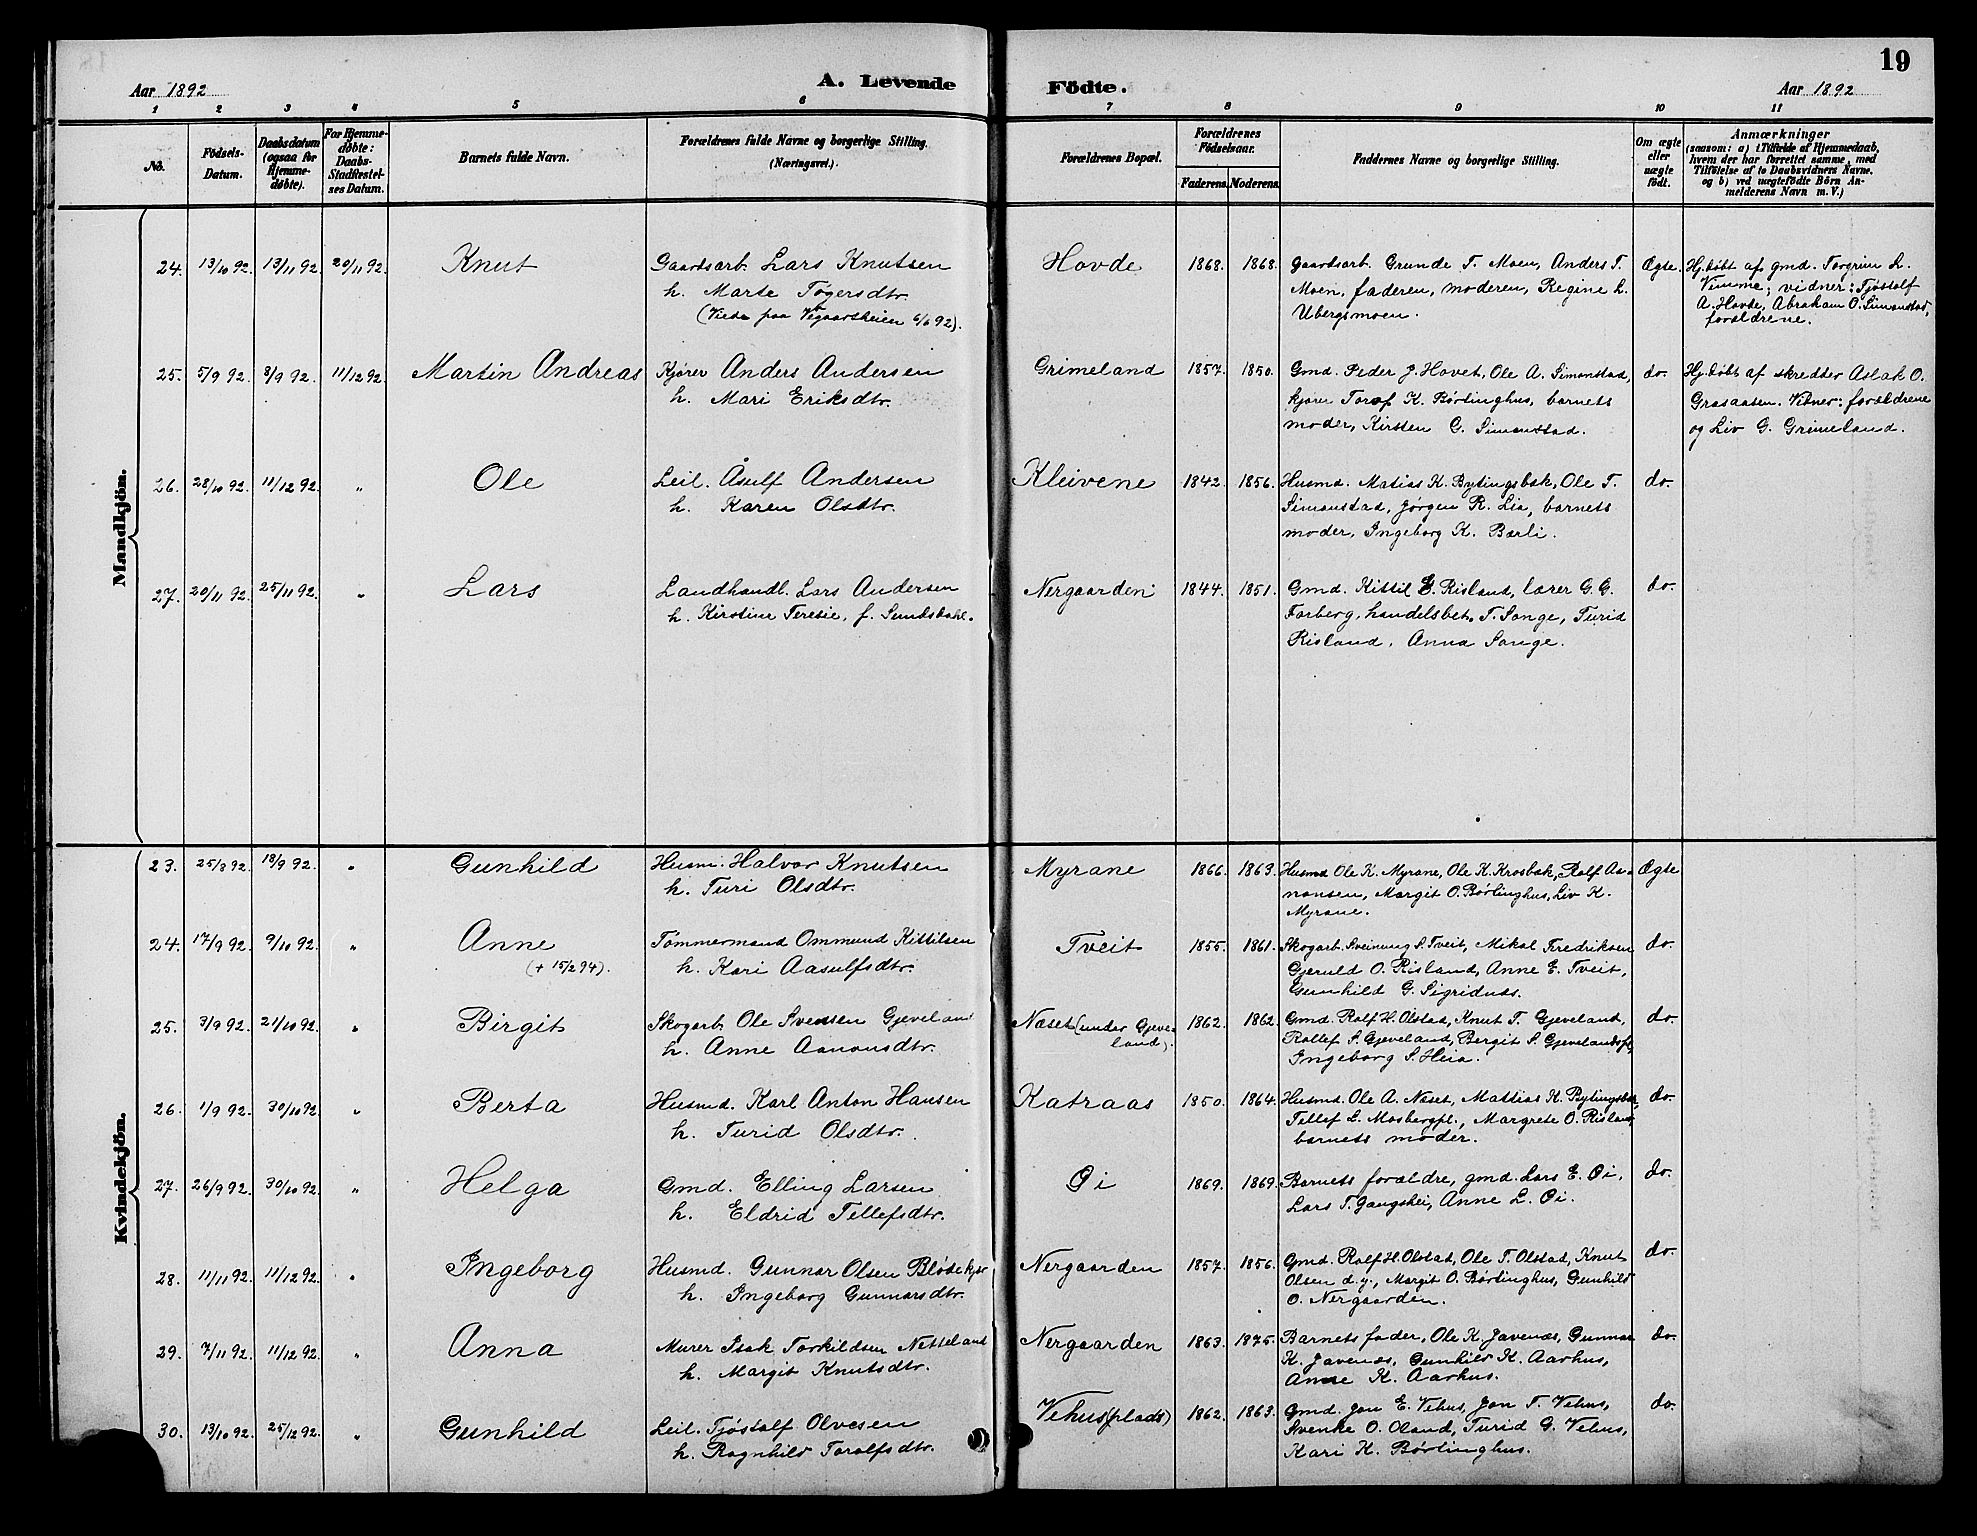 19
Aar 1892
A. Levende Födte.
Aar 1892
1 2 3 4 5 6 7 8 9 10 11
No.
Födsels-Datum.
Daabsdatum (ogsaa for Hjemme-døbte).
For Hjemme-døbte: Daabs-Stadfæstel-ses Datum.
Barnets fulde Navn.
Forældrenes fulde Navne og borgerlige Stilling.
(Næringsvei.)
Forældrenes Bopæl.
Forældrenes Födselsaar.
Faderens. Moderens.
Faddernes Navne og borgerlige Stilling.
Om ægte eller uægte født.
Anmærkninger
(saasom: a) i Tilfælde af Hjemmedaab,
hvem der har forrettet samme, med
Tilföielse af to Daabsvidners Navne.
og b) ved uægtefödte Börn An-
melderens Navn m. V.)
Mandkjön.
24. 13/10 92. 13/11 92. 20/11 92. Knut Gaardsarb. Lars Knutsen Hovde 1868. 1868. Gaardsarb. Grunde T. Moen, Anders T. Ægte. Hj.døbt af gmd. Torgrim L.
h. Marte Tøgersdtr. Moen, faderen, moderen, Regine L. Vimme; vidner: Tjøstolf
(Viede paa Vegaardsheien 6/6 92). Ubergsmoen. A. Hovde, Abraham O. Simonstad,
forældrene.
25. 5/9 92. 8/9 92. 11/12 92. Martin Andreas Kjører Anders Andersen Grimeland 1857. 1850. Gmd. Peder J. Hovet, Ole A. Simonstad, do. Hj.døbt af skrædder Aslak O.
h. Mari Eriksdtr. kjører Toraf K. Børlinghus, barnets Grasaasen. Vidner: forældrene
moder, Kirsten G. Simonstad. og Liv G. Grimeland.
26. 28/10 92. 11/12 92. " Ole Leil. Åsulf Andersen Kleivene 1842. 1856. Husmd. Matias K. Bytingsbak, Ole T. do.
h. Karen Olsdtr. Simonstad, Jørgen R. Lia, barnets
moder, Ingeborg K. Bærli.
27. 20/11 92. 25/11 92. " Lars Landhandl. Lars Andersen Nergaarden 1844. 1851. Gmd. Kittil E. Risland, lærer G. G. do.
h. Kirstine Teresie, f. Sundsdahl. Farberg, handelsbet. T. Songe, Turid
Risland, Anna Songe.
Kvindekjön.
23. 25/8 92. 18/9 92. " Gunhild Husm. Halvor Knutsen Myrane 1866. 1863. Husmd Ole K. Myrane, Ole K. Krosbak, Rolf Aa- Ægte
h. Turi Olsdtr. nonsen, Margit O. Børlinghus, Liv K.
Myrane.
24. 17/9 92. 9/10 92. " Anne Tømmermand Ommund Kittilsen Tveit 1855. 1861. Skogarb. Sveinung S. Tveit, Mikal Fredriksen do.
(+ 15/2 94). h. Kari Aasulfsdtr. Gjeruld O. Risland, Anne E. Tveit,
Gunhild G. Sigridnæs.
25. 3/9 92. 21/10 92. " Birgit Skogarb. Ole Svensen Gjeveland Næset (under Gjeve- 1862. 1862. Gmd. Rolf H. Olstad, Knut T. Gjeveland, do.
h. Anne Aanonsdtr. land). Rollef S. Gjeveland, Bergit S. Gjevelandspl.,
Ingeborg S. Heia.
26. 1/9 92. 30/10 92. " Berta Husmd. Karl Anton Hansen Katraas 1850. 1864. Husmd. Ole A. Næset, Mattias K. Bytingsbak, do.
h. Turid Olsdtr. Tellef L. Mosbergpl., Margrete O. Risland,
barnets moder.
27. 26/9 92. 30/10 92. " Helga Gmd. Elling Larsen Øi 1869. 1869. Barnets forældre, gmd. Lars E. Øi, do.
h. Eldrid Tellefsdtr. Lars T. Gangshei, Anne L. Øi.
28. 11/11 92. 11/12 92. " Ingeborg Husmd. Gunnar Olsen Blødekjær Nergaarden 1857. 1856. Gmd. Rolf H. Olstad, Ole T. Olstad, Knut do.
h. Ingeborg Gunnarsdtr. Olsen d.y., Margit O. Børlinghus, Gunhild
O. Nergaarden.
29. 7/11 92. 11/12 92. " Anna Murer Isak Torkildsen Netteland Nergaarden 1863. 1875. Barnets fader, Ole K. Javenæs, Gunnar do.
h. Margit Knutsdtr. K. Javenæs, Gunhild K. Aarhus,
Anne K. Aarhus.
30. 13/10 92. 25/12 92. " Gunhild Leil. Tjøstolf Olvesen Vehus(plads) 1862. 1863. Gmd. Jon E. Vehus, Jon T. Vehus, do.
h. Ragnhild Torolfsdtr. Svenke O. Oland, Turid G. Vehus,
Kari K. Børlinghus.